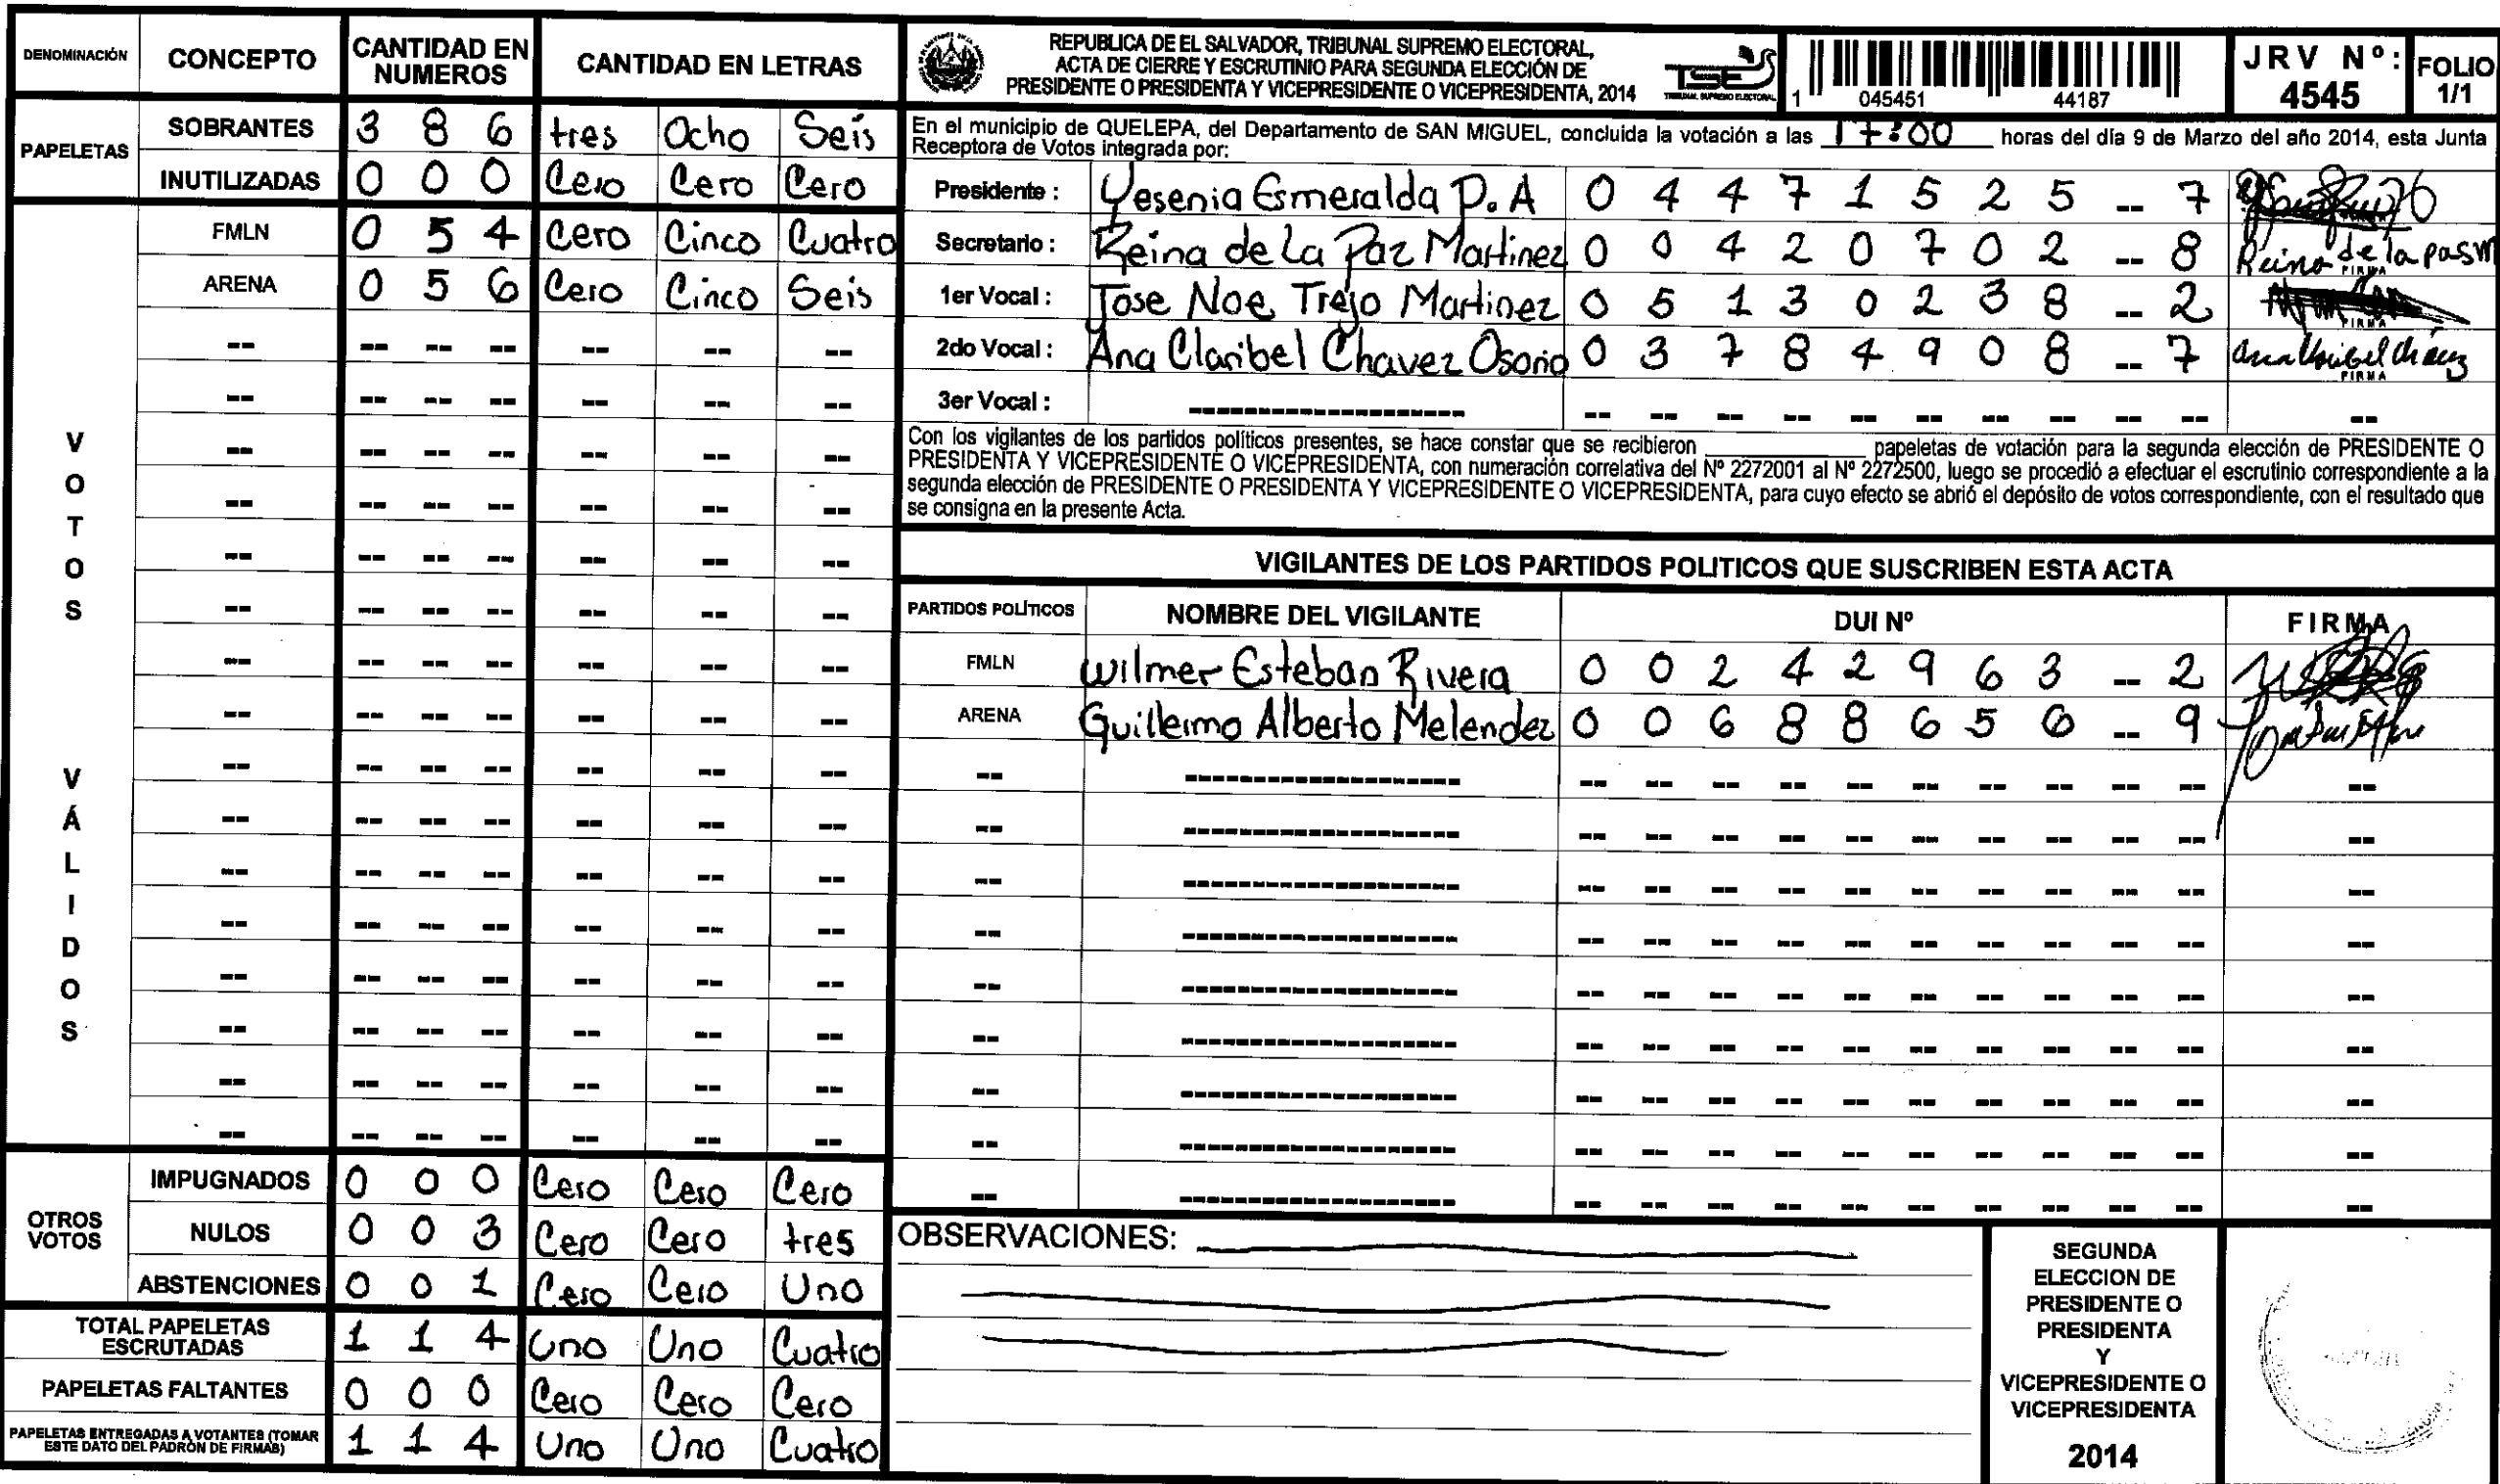 DENOMINACIÓN CONCEPTO CANTIDAD EN NUMEROS CANTIDAD EN LETRAS
PAPELETAS
SOBRANTES 3 8 6 tres Ocho Seis
INUTILIZADAS 0 0 0 Cero Cero Cero
VOTOS VÁLIDOS
FMLN 0 5 4 Cero Cinco Cuatro
ARENA 0 5 6 Cero Cinco Seis
OTROS VOTOS
IMPUGNADOS 0 0 0 Cero Cero Cero
NULOS 0 0 3 Cero Cero tres
ABSTENCIONES 0 0 1 Cero Cero Uno
TOTAL PAPELETAS ESCRUTADAS 1 1 4 Uno Uno Cuatro
PAPELETAS FALTANTES 0 0 0 Cero Cero Cero
PAPELETAS ENTREGADAS A VOTANTES (TOMAR ESTE DATO DEL PADRÓN DE FIRMAS) 1 1 4 Uno Uno Cuatro
REPUBLICA DE EL SALVADOR, TRIBUNAL SUPREMO ELECTORAL,
ACTA DE CIERRE Y ESCRUTINIO PARA SEGUNDA ELECCIÓN DE
PRESIDENTE O PRESIDENTA Y VICEPRESIDENTE O VICEPRESIDENTA, 2014
TSE
TRIBUNAL SUPREMO ELECTORAL
1 045451 44187
JRV Nº: 4545
FOLIO 1/1
En el municipio de QUELEPA, del Departamento de SAN MIGUEL, concluida la votación a las 17:00 horas del día 9 de Marzo del año 2014, esta Junta
Receptora de Votos integrada por:
Presidente : Yesenia Esmeralda P. A 0 4 4 7 1 5 2 5 -- 7
Secretario : Reina de La Paz Martinez 0 0 4 2 0 7 0 2 -- 8 Reina de la pas M FIRMA
1er Vocal : Jose Noe Trejo Martinez 0 5 1 3 0 2 3 8 -- 2 FIRMA
2do Vocal : Ana Claribel Chavez Osorio 0 3 7 8 4 9 0 8 -- 7 FIRMA
3er Vocal :
Con los vigilantes de los partidos políticos presentes, se hace constar que se recibieron ________ papeletas de votación para la segunda elección de PRESIDENTE O
PRESIDENTA Y VICEPRESIDENTE O VICEPRESIDENTA, con numeración correlativa del Nº 2272001 al Nº 2272500, luego se procedió a efectuar el escrutinio correspondiente a la
segunda elección de PRESIDENTE O PRESIDENTA Y VICEPRESIDENTE O VICEPRESIDENTA, para cuyo efecto se abrió el depósito de votos correspondiente, con el resultado que
se consigna en la presente Acta.
VIGILANTES DE LOS PARTIDOS POLITICOS QUE SUSCRIBEN ESTA ACTA
PARTIDOS POLÍTICOS NOMBRE DEL VIGILANTE DUI Nº FIRMA
FMLN Wilmer Esteban Rivera 0 0 2 4 2 9 6 3 -- 2
ARENA Guillermo Alberto Melendez 0 0 6 8 8 6 5 6 -- 9
OBSERVACIONES:
SEGUNDA
ELECCION DE
PRESIDENTE O
PRESIDENTA
Y
VICEPRESIDENTE O
VICEPRESIDENTA
2014